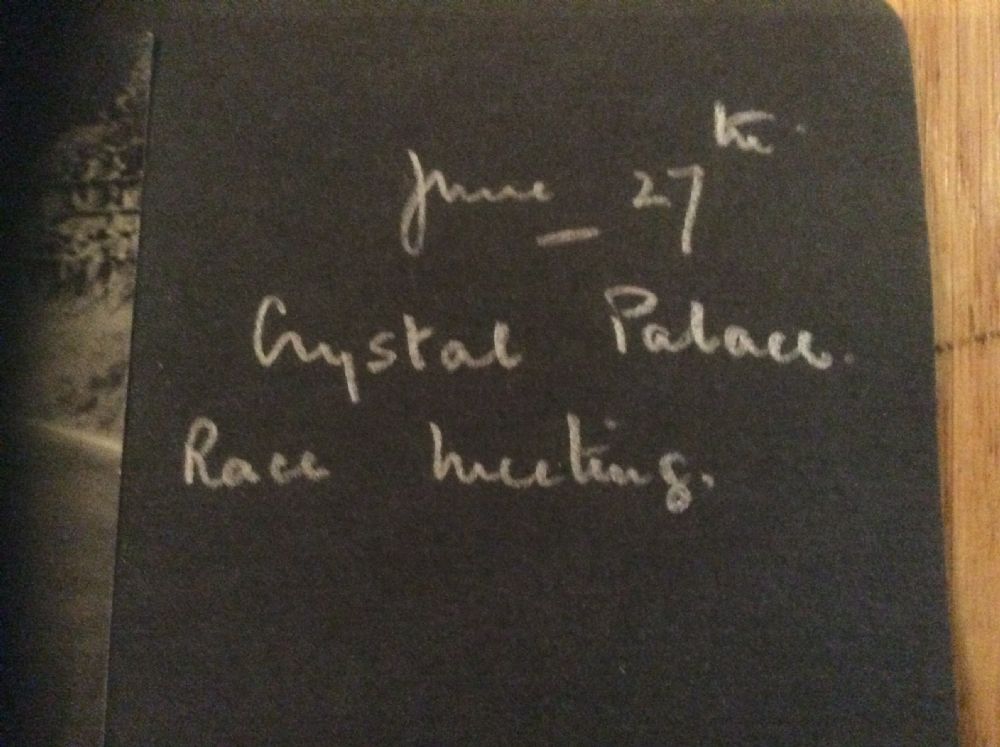 June 27th
Crystal Palace.
Race Meeting.